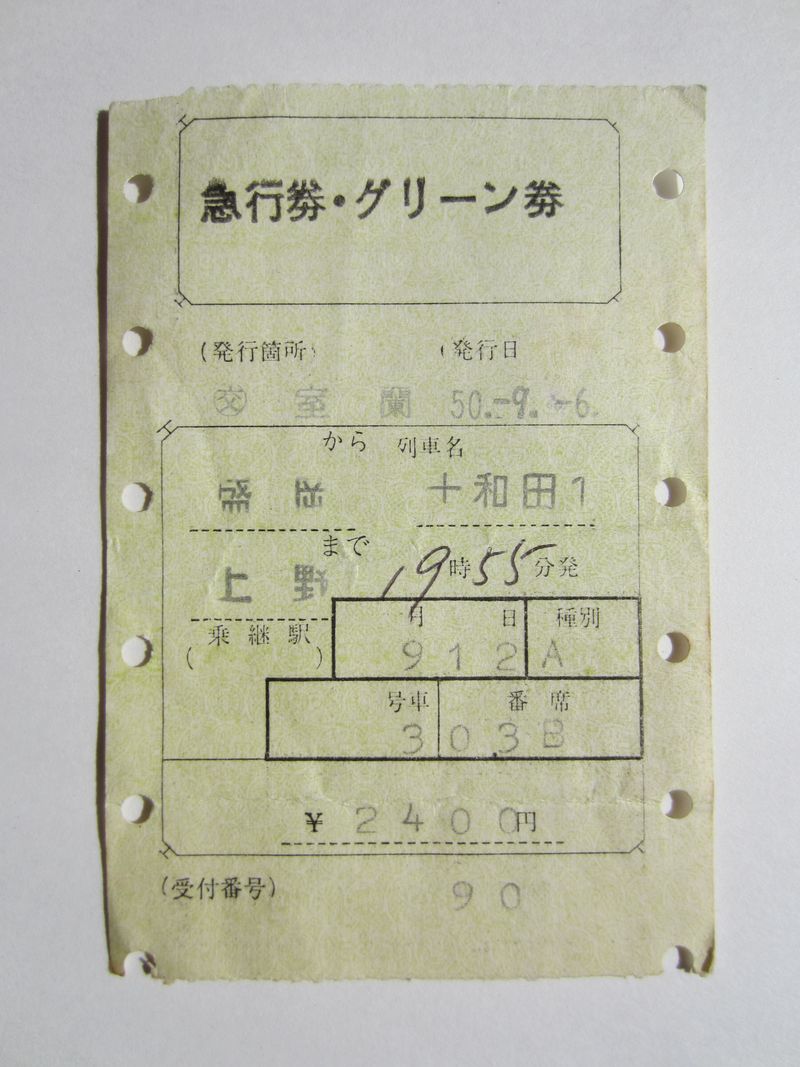 急行券・グリーン券
(発行箇所) (発行日
㊋交 室蘭 50.-9.-6.
から 列車名
盛岡 十和田1
まで
上野 19時55分発
(乗継駅) 月 日 種別
9 12 A
号車 番 席
3 03 B
¥2400円
(受付番号) 90